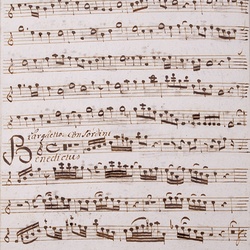 Larghetto Con Sordini
Benedictus